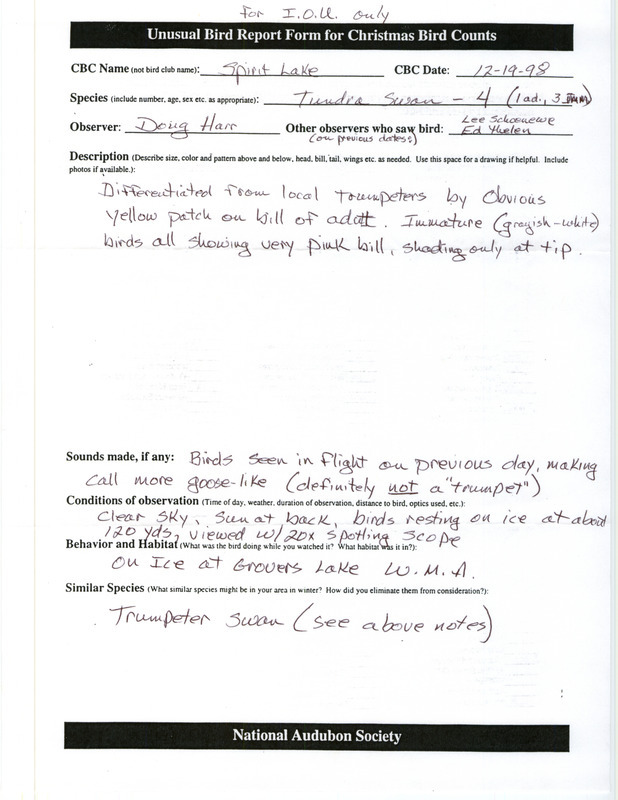 For I.O.U. only
Unusual Bird Report Form for Christmas Bird Counts
CBC Name (not bird club name): Spirit Lake CBC Date: 12-19-98
Species (include number, age, sex etc. as appropriate): Tundra Swan - 4 (1 ad., 3 Imm)
Observer: Doug Harr Other observers who saw bird: Lee Schoenewe
(on previous dates:) Ed Thelen
Description (Describe size, color and pattern above and below, head, bill, tail, wings etc. as needed. Use this space for a drawing if helpful. Include
photos if available.):
Differentiated from local trumpeters by Obvious
yellow patch on bill of adult. Immature (grayish-white)
birds all showing very pink bill, shading only at tip.
Sounds made, if any: Birds seen in flight on previous day, making
call more goose-like (definitely not a "trumpet")
Conditions of observation (Time of day, weather, duration of observation, distance to bird, optics used, etc.):
Clear sky, sun at back, birds resting on ice at about
120 yds, viewed w/20x spotting scope
Behavior and Habitat (What was the bird doing while you watched it? What habitat was it in?):
On Ice at Grovers Lake W.M.A.
Similar Species (What similar species might be in your area in winter? How did you eliminate them from consideration?):
Trumpeter Swan (see above notes)
National Audubon Society